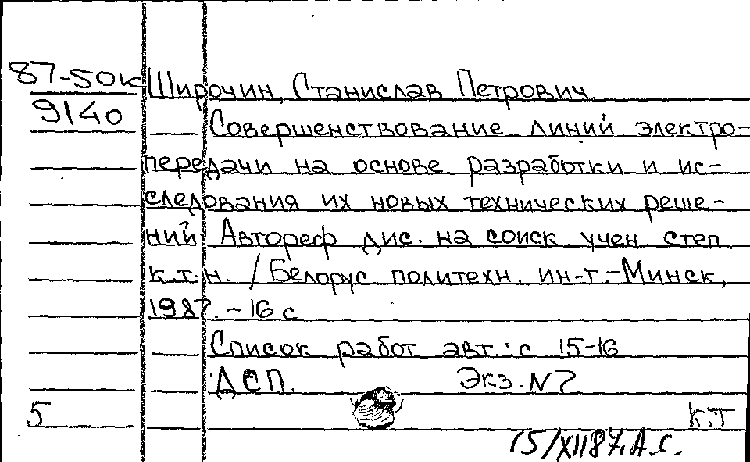 87-50к Широчин, Станислав Петрович
9140 Совершенствование линий электро-
передачи на основе разработки и ис-
следования их новых технических реше-
ний: Автореф дис. на соиск учен степ
к.т.н. / Белорус политехн. ин-т.-Минск,
1987. - 16 с
Список работ авт.: с 15-16
ДСП. Экз. N7
5 К.Т
15/XII87. А.С.